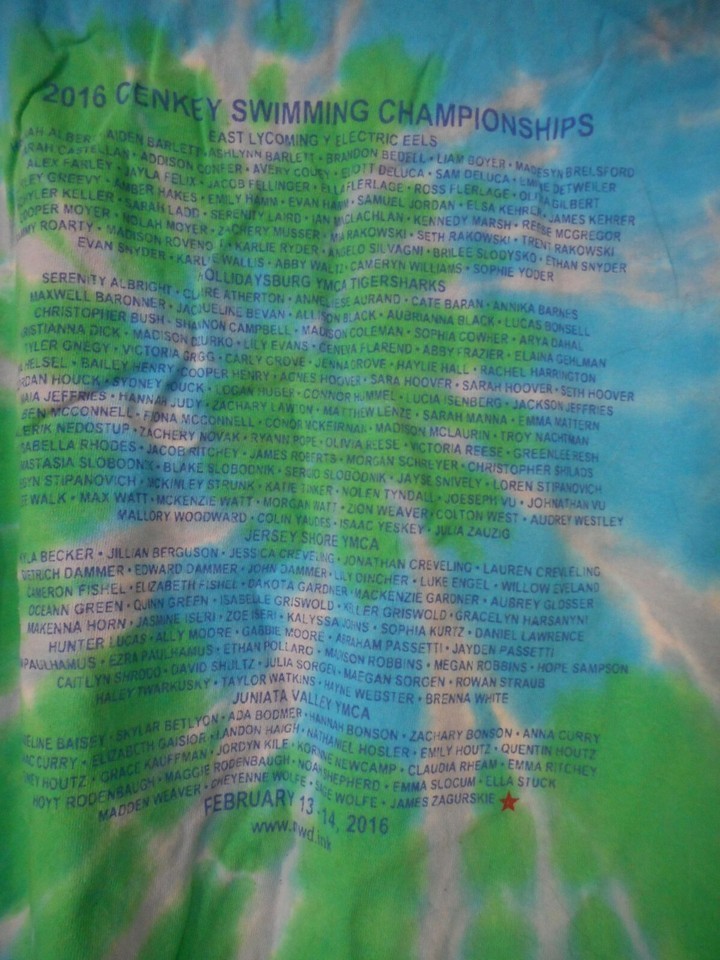 2016 CENKEY SWIMMING CHAMPIONSHIPS
EAST LYCOMING Y ELECTRIC EELS
AIDEN BARLETT • ASHLYNN BARLETT • BRANDON BEDELL • LIAM BOYER • MADESYN BRELSFORD
CASTELLAN • ADDISON CONFER • AVERY COREY • DELUCA • SAM DELUCA • DETWEILER
ALEX FARLEY • JAYLA FELIX • JACOB FELLINGER • ELLA FLERLAGE • ROSS FLERLAGE • GILBERT
GREEVY • AMBER HAKES • EMILY HAMM • EVAN • SAMUEL JORDAN • ELSA KEHRER • JAMES KEHRER
KELLER • SARAH LADD • SERENITY LAIRD • IAN MCLACHLAN • KENNEDY MARSH • REESE MCGREGOR
COOPER MOYER • NOLAH MOYER • ZACHERY MUSSER • RAKOWSKI • SETH RAKOWSKI • TRENT RAKOWSKI
ROARTY • MADISON • KARLIE RYDER • ANGELO SILVAGNI • BRILEE SLODYSKO • ETHAN SNYDER
EVAN SNYDER • WALLIS • ABBY WALTZ • CAMERYN WILLIAMS • SOPHIE YODER
HOLLIDAYSBURG YMCA TIGERSHARKS
SERENITY ALBRIGHT • CLAIRE ATHERTON • AURAND • CATE BARAN • ANNIKA BARNES
MAXWELL BARONNER • JACQUELINE BEVAN • ALLISON BLACK • AUBRIANNA BLACK • LUCAS BONSELL
CHRISTOPHER BUSH • SHANNON CAMPBELL • MADISON COLEMAN • SOPHIA COWHER • ARYA DAHAL
DICK • MADISON • LILY EVANS • GENEVA FLAREND • ABBY FRAZIER • ELAINA GEHLMAN
TYLER GNEGY • VICTORIA • CARLY GROVE • JENNA GROVE • HAYLIE HALL • RACHEL HARRINGTON
HELSEL • BAILEY HENRY • COOPER HENRY • AGNES HOOVER • SARA HOOVER • SARAH HOOVER • SETH HOOVER
HOUCK • SYDNEY HOUCK • LOGAN HUBER • CONNOR HUMMEL • LUCIA ISENBERG • JACKSON JEFFRIES
JEFFRIES • HANNAH JUDY • ZACHARY LAWTON • MATTHEW LENZE • SARAH MANNA • EMMA MATTERN
BEN MCCONNELL • FIONA MCCONNELL • CONOR MCKEIRNAN • MADISON MCLAURIN • TROY NACHTMAN
NEDOSTUP • ZACHERY NOVAK • RYANN POPE • OLIVIA REESE • VICTORIA REESE • GREENLEE RESH
RHODES • JACOB RITCHEY • JAMES ROBERTS • MORGAN SCHREYER • CHRISTOPHER
SLOBODNIK • BLAKE SLOBODNIK • SERGIO SLOBODNIK • JAYSE SNIVELY • LOREN STIPANOVICH
STIPANOVICH • MCKINLEY STRUNK • KATIE TINKER • NOLEN TYNDALL • JOESEPH VU • JOHNATHAN VU
WALK • MAX WATT • MCKENZIE WATT • MORGAN WATT • ZION WEAVER • COLTON WEST • AUDREY WESTLEY
MALLORY WOODWARD • COLIN YAUDES • ISAAC YESKEY • JULIA ZAUZIG
JERSEY SHORE YMCA
BECKER • JILLIAN BERGUSON • JESSICA CREVELING • JONATHAN CREVELING • LAUREN CREVELING
DIETRICH DAMMER • EDWARD DAMMER • JOHN DAMMER • LILY DINCHER • LUKE ENGEL • WILLOW EVELAND
CAMERON FISHEL • ELIZABETH FISHEL • DAKOTA GARDNER • MACKENZIE GARDNER • AUBREY GLOSSER
OCEANN GREEN • QUINN GREEN • ISABELLE GRISWOLD • GRISWOLD • GRACELYN HARSANYNI
MAKENNA HORN • JASMINE ISERI • ZOE ISERI • KALYSSA JOHNS • SOPHIA KURTZ • DANIEL LAWRENCE
HUNTER LUCAS • ALLY MOORE • GABBIE MOORE • ABRAHAM PASSETTI • JAYDEN PASSETTI
PAULHAMUS • EZRA PAULHAMUS • ETHAN POLLARD • MAXSON ROBBINS • MEGAN ROBBINS • HOPE SAMPSON
CAITLYN • DAVID SHULTZ • JULIA SORGEN • MAEGAN SORGEN • ROWAN STRAUB
HALEY TWARKUSKY • TAYLOR WATKINS • WEBSTER • BRENNA WHITE
JUNIATA VALLEY YMCA
BAISEY • SKYLAR BETLYON • ADA BODMER • HANNAH BONSON • ZACHARY BONSON • ANNA CURRY
CURRY • ELIZABETH GAISIOR • LANDON HAIGH • NATHANIEL HOSLER • EMILY HOUTZ • QUENTIN HOUTZ
HOUTZ • GRACE KAUFFMAN • JORDYN KILE • NEWCAMP • CLAUDIA RHEAM • EMMA RITCHEY
HOYT RODENBAUGH • MAGGIE RODENBAUGH • NOAH SHEPHERD • EMMA SLOCUM • ELLA STUCK
MADDEN WEAVER • CHEYENNE WOLFE • WOLFE • JAMES ZAGURSKIE
FEBRUARY 13-14, 2016